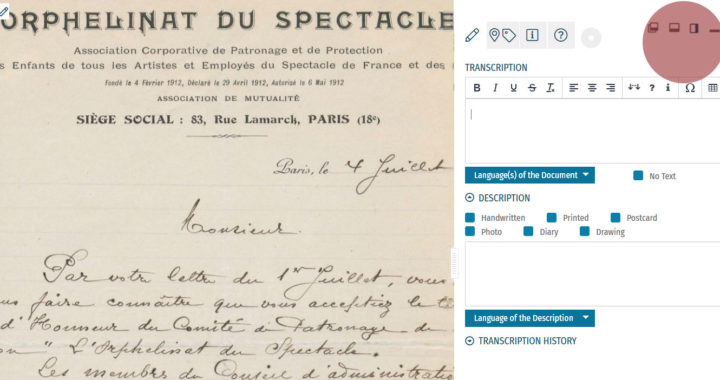 ORPHELINAT DU SPECTACLE
Association Corporative de Patronage et de Protection
s Enfants de tous les Artistes et Employés du Spectacle de France et des
Fondé le 4 Février 1912, Déclaré le 29 Avril 1912, Autorisé le 6 Mai 1912
ASSOCIATION DE MUTUALITÉ
SIÈGE SOCIAL : 83, Rue Lamarck, PARIS (18e)
Paris, le 4 Juillet
Monsieur.
Par votre lettre du 1er Juillet, vous
faire connaître que vous acceptiez le
d'Honneur du Comité de Patronage de
"L'Orphelinat du Spectacle.
Les membres du Conseil d'administratio
TRANSCRIPTION
B I U S Tx ? i Ω
Language(s) of the Document
No Text
DESCRIPTION
Handwritten Printed Postcard
Photo Diary Drawing
Language of the Description
TRANSCRIPTION HISTORY